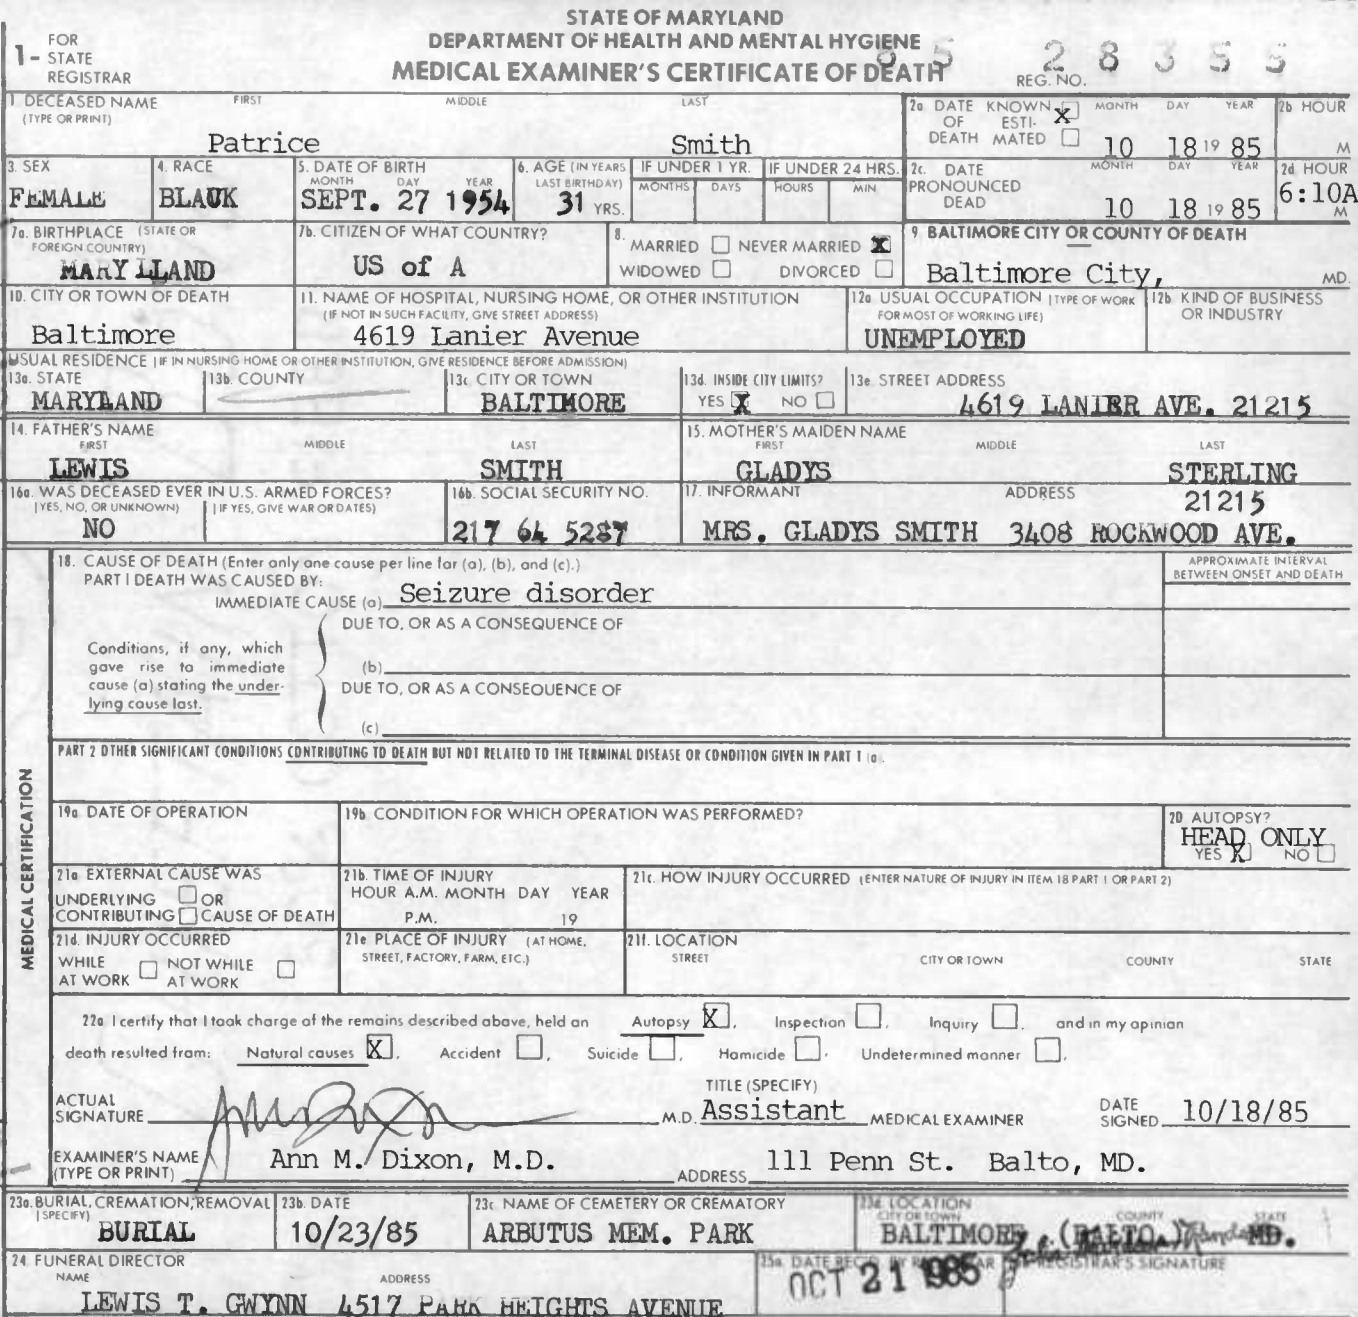 STATE OF MARYLAND
DEPARTMENT OF HEALTH AND MENTAL HYGIENE
MEDICAL EXAMINER'S CERTIFICATE OF DEATH
1- FOR STATE REGISTRAR
REG. NO. 85 28355
1. DECEASED NAME (TYPE OR PRINT) FIRST MIDDLE LAST
Patrice Smith
2a DATE OF DEATH KNOWN X ESTIMATED MONTH DAY YEAR 2b HOUR
10 18 19 85 M
3. SEX 4. RACE 5. DATE OF BIRTH MONTH DAY YEAR 6. AGE (IN YEARS LAST BIRTHDAY) IF UNDER 1 YR. MONTHS DAYS IF UNDER 24 HRS. HOURS MIN
FEMALE BLACK SEPT. 27 1954 31 YRS.
2c. DATE PRONOUNCED DEAD MONTH DAY YEAR 2d HOUR
10 18 19 85 6:10A M
7a. BIRTHPLACE (STATE OR FOREIGN COUNTRY) 7b. CITIZEN OF WHAT COUNTRY?
MARYLLAND US of A
8. MARRIED NEVER MARRIED X
WIDOWED DIVORCED
9 BALTIMORE CITY OR COUNTY OF DEATH
Baltimore City, MD.
10. CITY OR TOWN OF DEATH
Baltimore
11. NAME OF HOSPITAL, NURSING HOME, OR OTHER INSTITUTION
(IF NOT IN SUCH FACILITY, GIVE STREET ADDRESS)
4619 Lanier Avenue
12a USUAL OCCUPATION (TYPE OF WORK FOR MOST OF WORKING LIFE)
UNEMPLOYED
12b. KIND OF BUSINESS OR INDUSTRY
USUAL RESIDENCE (IF IN NURSING HOME OR OTHER INSTITUTION, GIVE RESIDENCE BEFORE ADMISSION)
13a. STATE 13b. COUNTY 13c. CITY OR TOWN 13d. INSIDE CITY LIMITS? 13e. STREET ADDRESS
MARYLAND BALTIMORE YES X NO 4619 LANIER AVE. 21215
14. FATHER'S NAME FIRST MIDDLE LAST
LEWIS SMITH
15. MOTHER'S MAIDEN NAME FIRST MIDDLE LAST
GLADYS STERLING
16a. WAS DECEASED EVER IN U.S. ARMED FORCES?
(YES, NO, OR UNKNOWN) (IF YES, GIVE WAR OR DATES)
NO
16b. SOCIAL SECURITY NO.
217 64 5287
17. INFORMANT ADDRESS 21215
MRS. GLADYS SMITH 3408 ROCKWOOD AVE.
MEDICAL CERTIFICATION
18. CAUSE OF DEATH (Enter only one cause per line for (a), (b), and (c).)
APPROXIMATE INTERVAL BETWEEN ONSET AND DEATH
PART I DEATH WAS CAUSED BY:
IMMEDIATE CAUSE (a) Seizure disorder
DUE TO, OR AS A CONSEQUENCE OF
Conditions, if any, which gave rise to immediate cause (a) stating the underlying cause last.
(b)
DUE TO, OR AS A CONSEQUENCE OF
(c)
PART 2 OTHER SIGNIFICANT CONDITIONS CONTRIBUTING TO DEATH BUT NOT RELATED TO THE TERMINAL DISEASE OR CONDITION GIVEN IN PART 1 (a).
19a DATE OF OPERATION
19b. CONDITION FOR WHICH OPERATION WAS PERFORMED?
20 AUTOPSY?
HEAD ONLY
YES X NO
21a EXTERNAL CAUSE WAS
UNDERLYING OR
CONTRIBUTING CAUSE OF DEATH
21b. TIME OF INJURY
HOUR A.M. MONTH DAY YEAR
P.M. 19
21c. HOW INJURY OCCURRED (ENTER NATURE OF INJURY IN ITEM 18 PART 1 OR PART 2)
21d. INJURY OCCURRED
WHILE AT WORK NOT WHILE AT WORK
21e PLACE OF INJURY (AT HOME, STREET, FACTORY, FARM, ETC.)
21f. LOCATION
STREET CITY OR TOWN COUNTY STATE
22a I certify that I took charge of the remains described above, held an Autopsy X, Inspection, Inquiry, and in my opinion
death resulted from: Natural causes X, Accident, Suicide, Homicide, Undetermined manner.
ACTUAL SIGNATURE M.D. TITLE (SPECIFY) Assistant MEDICAL EXAMINER DATE SIGNED 10/18/85
EXAMINER'S NAME (TYPE OR PRINT) Ann M. Dixon, M.D. ADDRESS 111 Penn St. Balto, MD.
23a. BURIAL, CREMATION, REMOVAL (SPECIFY)
BURIAL
23b. DATE
10/23/85
23c. NAME OF CEMETERY OR CREMATORY
ARBUTUS MEM. PARK
23d. LOCATION CITY OR TOWN COUNTY STATE
BALTIMORE (BALTO) MD.
24 FUNERAL DIRECTOR
NAME ADDRESS
LEWIS T. GWYNN 4517 PARK HEIGHTS AVENUE
25a. DATE REC'D. BY REGISTRAR
OCT 21 1985
REGISTRAR'S SIGNATURE